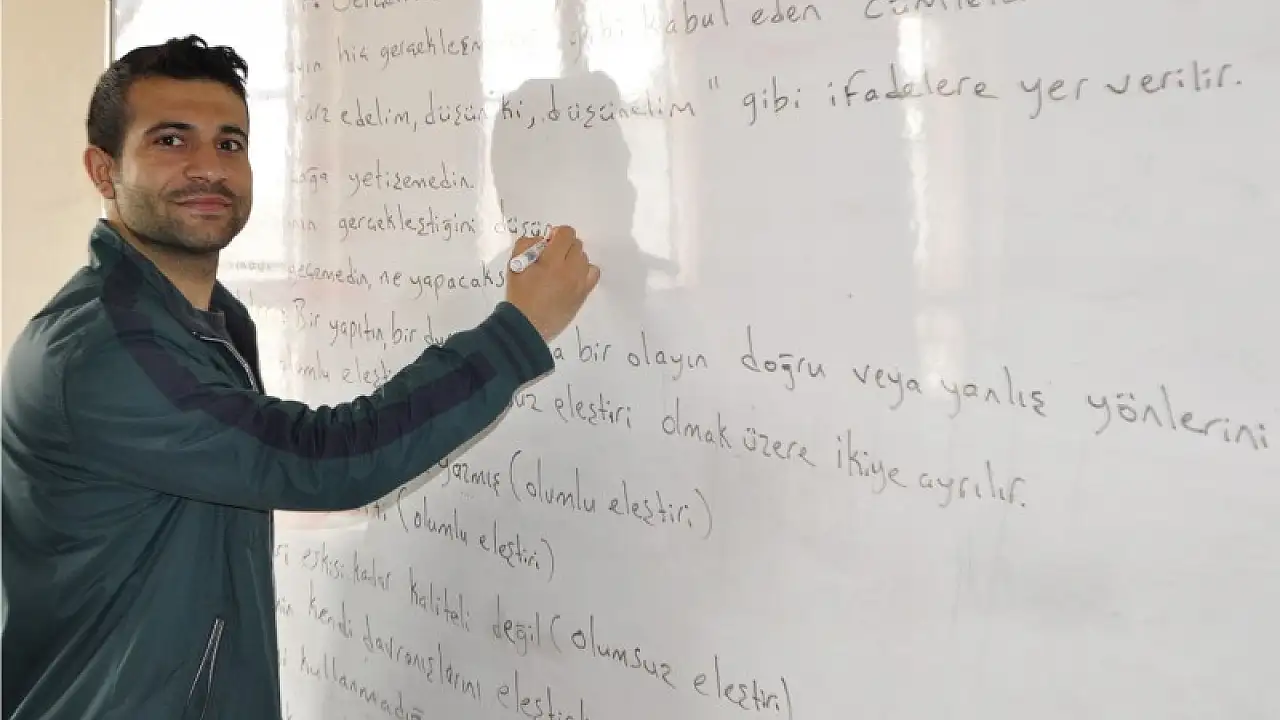 hiç gerçekleşm gibi kabul eden
edelim, düşün ki, düşünelim" gibi ifadelere yer verilir.
yetişemedin.
gerçekleştiğini düşün
geçemedin, ne yapacaks
Bir yapıtın, bir du a bir olayın doğru veya yanlış yönlerini
eleştiri olmak üzere ikiye ayrılır.
yazmış (olumlu eleştiri)
(olumlu eleştiri)
eskisi kadar kaliteli değil (olumsuz eleştiri)
kendi davranışlarını
kullanmadığ